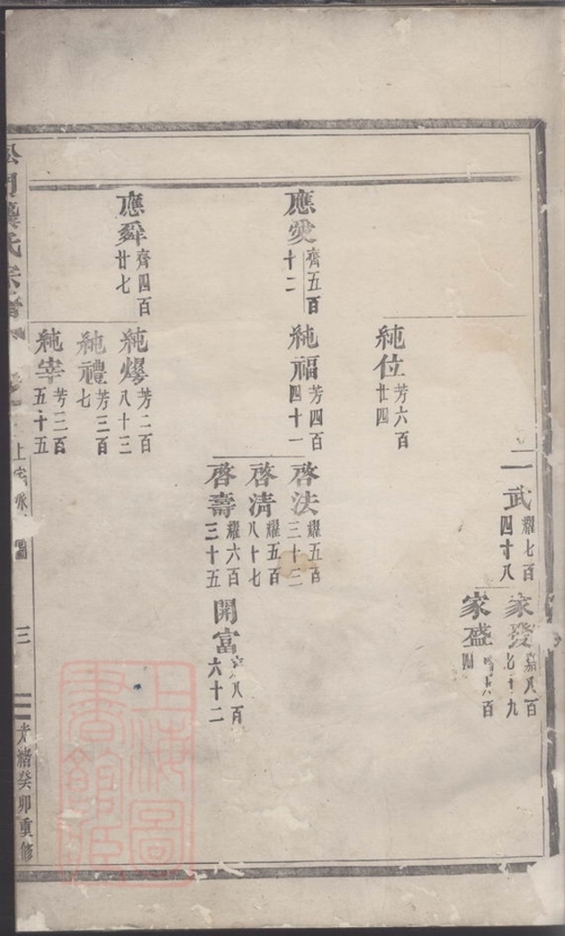 二武 耀七百四十八
家發 八百七十九
家盛 百四
純位 芳六百廿四
應燮 齊五百十二
純福 芳四百四十一
啓法 耀五百三十三
啓清 耀五百八十七
啓壽 耀六百三十五
開富 八百六十二
應舜 齊四百廿七
純爕 芳二百八十三
純禮 芳三百七
純宰 芳三百五十五
氏宗譜
三
光緒癸卯重修
上海圖書館藏